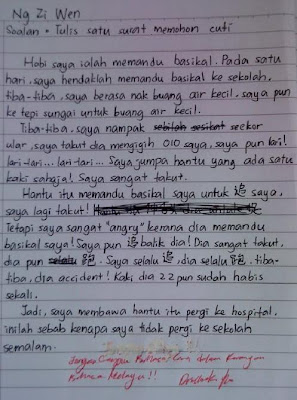 Ng Zi Wen
Soalan • Tulis satu surat memohon cuti
Hobi saya ialah memandu basikal. Pada satu
hari, saya hendaklah memandu basikal ke sekolah,
tiba-tiba, saya berasa nak buang air kecil. saya pun
ke tepi sungai untuk buang air kecil.
Tiba-tiba, saya nampak seekor
ular, saya takut dia mengigih 010 saya, saya pun lari!
lari-lari... lari-lari... Saya jumpa hantu yang ada satu
kaki sahaja! Saya sangat takut.
Hantu itu memandu basikal saya untuk 追 saya,
saya lagi takut!
Tetapi saya sangat "angry" kerana dia memandu
basikal saya! Saya pun 追 balik dia! Dia sangat takut,
dia pun 跑. Saya selalu 追, dia selalu 跑. tiba-
tiba, dia accident! Kaki dia 22 pun sudah habis
sekali.
Jadi, saya membawa hantu itu pergi ke hospital,
inilah sebab kenapa saya tidak pergi ke sekolah
semalam.
Jangan dalam karangan
Bahasa Melayu!!